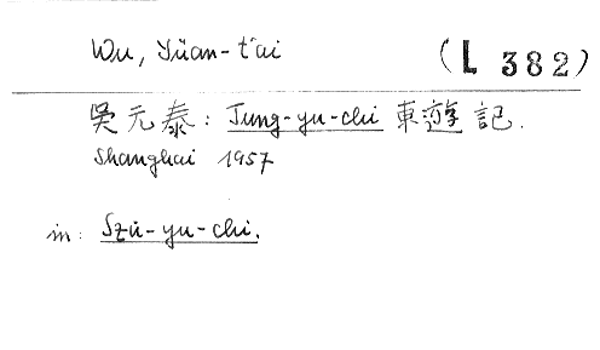 Wu, Yüan-t'ai (L 382)
吳元泰: Tung-yu-chi 東遊記.
Shanghai 1957
in: Szŭ-yu-chi.